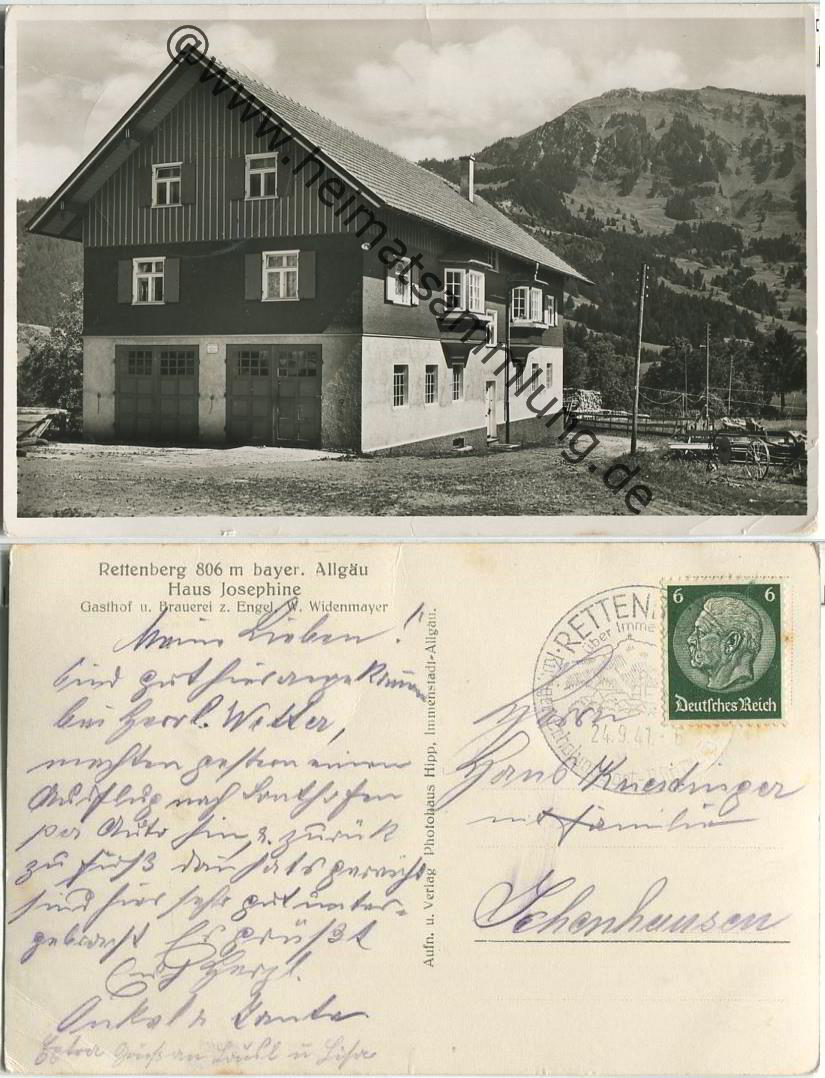 © www.heimatsammlung.de
Rettenberg 806 m bayer. Allgäu
Haus Josephine
Gasthof u. Brauerei z. Engel, W. Widenmayer
Meine Lieben!
sind gut hier angekommen
bei herrl. Wetter,
machten gestern einen
Ausflug nach Sonthofen
per Auto hin, u. zurück
zu Fuß dan hats gereicht
sind hier sehr gut unter-
gebracht Es grüßt
Euch herzl.
Onkel u Tante
Extra Gruß an u Lisa
Aufn. u. Verlag Photohaus Hipp, Immenstadt-Allgäu.
RETTEN
über Imme
24.9.41
6 6
Deutsches Reich
Hans
mit Familie
Ichenhausen